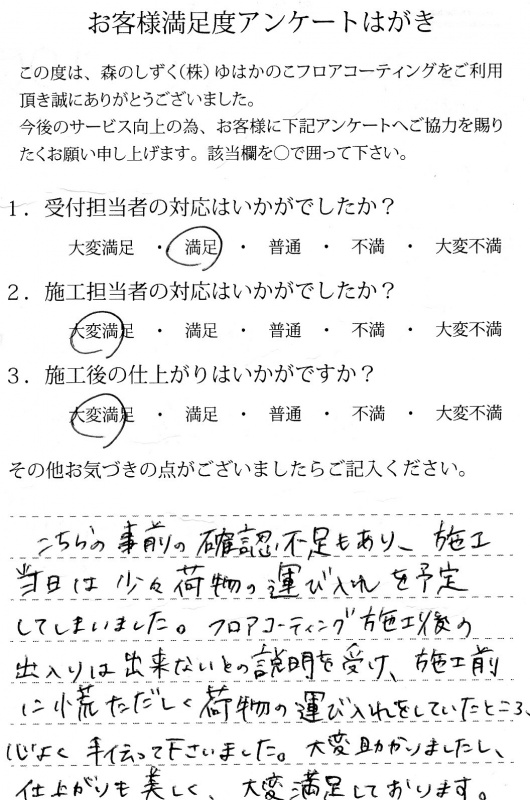 お客様満足度アンケートはがき
この度は、森のしずく(株)ゆはかのこフロアコーティングをご利用
頂き誠にありがとうございました。
今後のサービス向上の為、お客様に下記アンケートへご協力を賜り
たくお願い申し上げます。該当欄を○で囲って下さい。
1．受付担当者の対応はいかがでしたか？
大変満足 ・ 満足 ・ 普通 ・ 不満 ・ 大変不満
2．施工担当者の対応はいかがでしたか？
大変満足 ・ 満足 ・ 普通 ・ 不満 ・ 大変不満
3．施工後の仕上がりはいかがですか？
大変満足 ・ 満足 ・ 普通 ・ 不満 ・ 大変不満
その他お気づきの点がございましたらご記入ください。
こちらの事前の確認不足もあり、施工
当日は少々荷物の運び入れを予定
してしまいました。フロアコーティング施工後の
出入りは出来ないとの説明を受け、施工前
に慌ただしく荷物の運び入れをしていたところ、
心よく手伝って下さいました。大変助かりましたし、
仕上がりも美しく、大変満足しております。